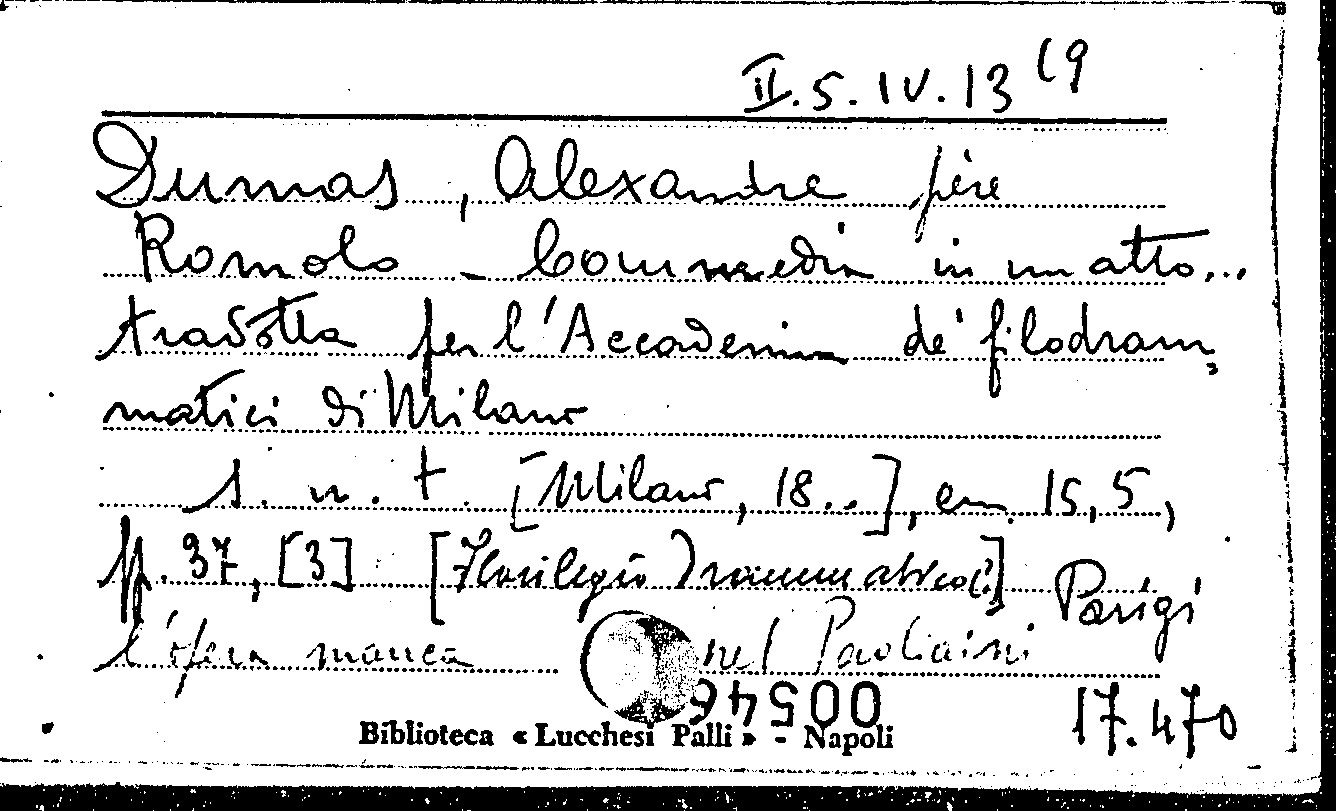 II.5.IV.13 (9
Dumas, Alexandre père
Romolo - Commedia in un atto...
tradotta per l'Accademia de' filodram,
matici di Milano
s. n. t. [Milano, 18..], cm. 15,5,
p. 37, [3] [Florilegio Drammatico(?)] Parigi
l'opera manca nel Pagliaini
00546
17.470
Biblioteca « Lucchesi Palli » - Napoli